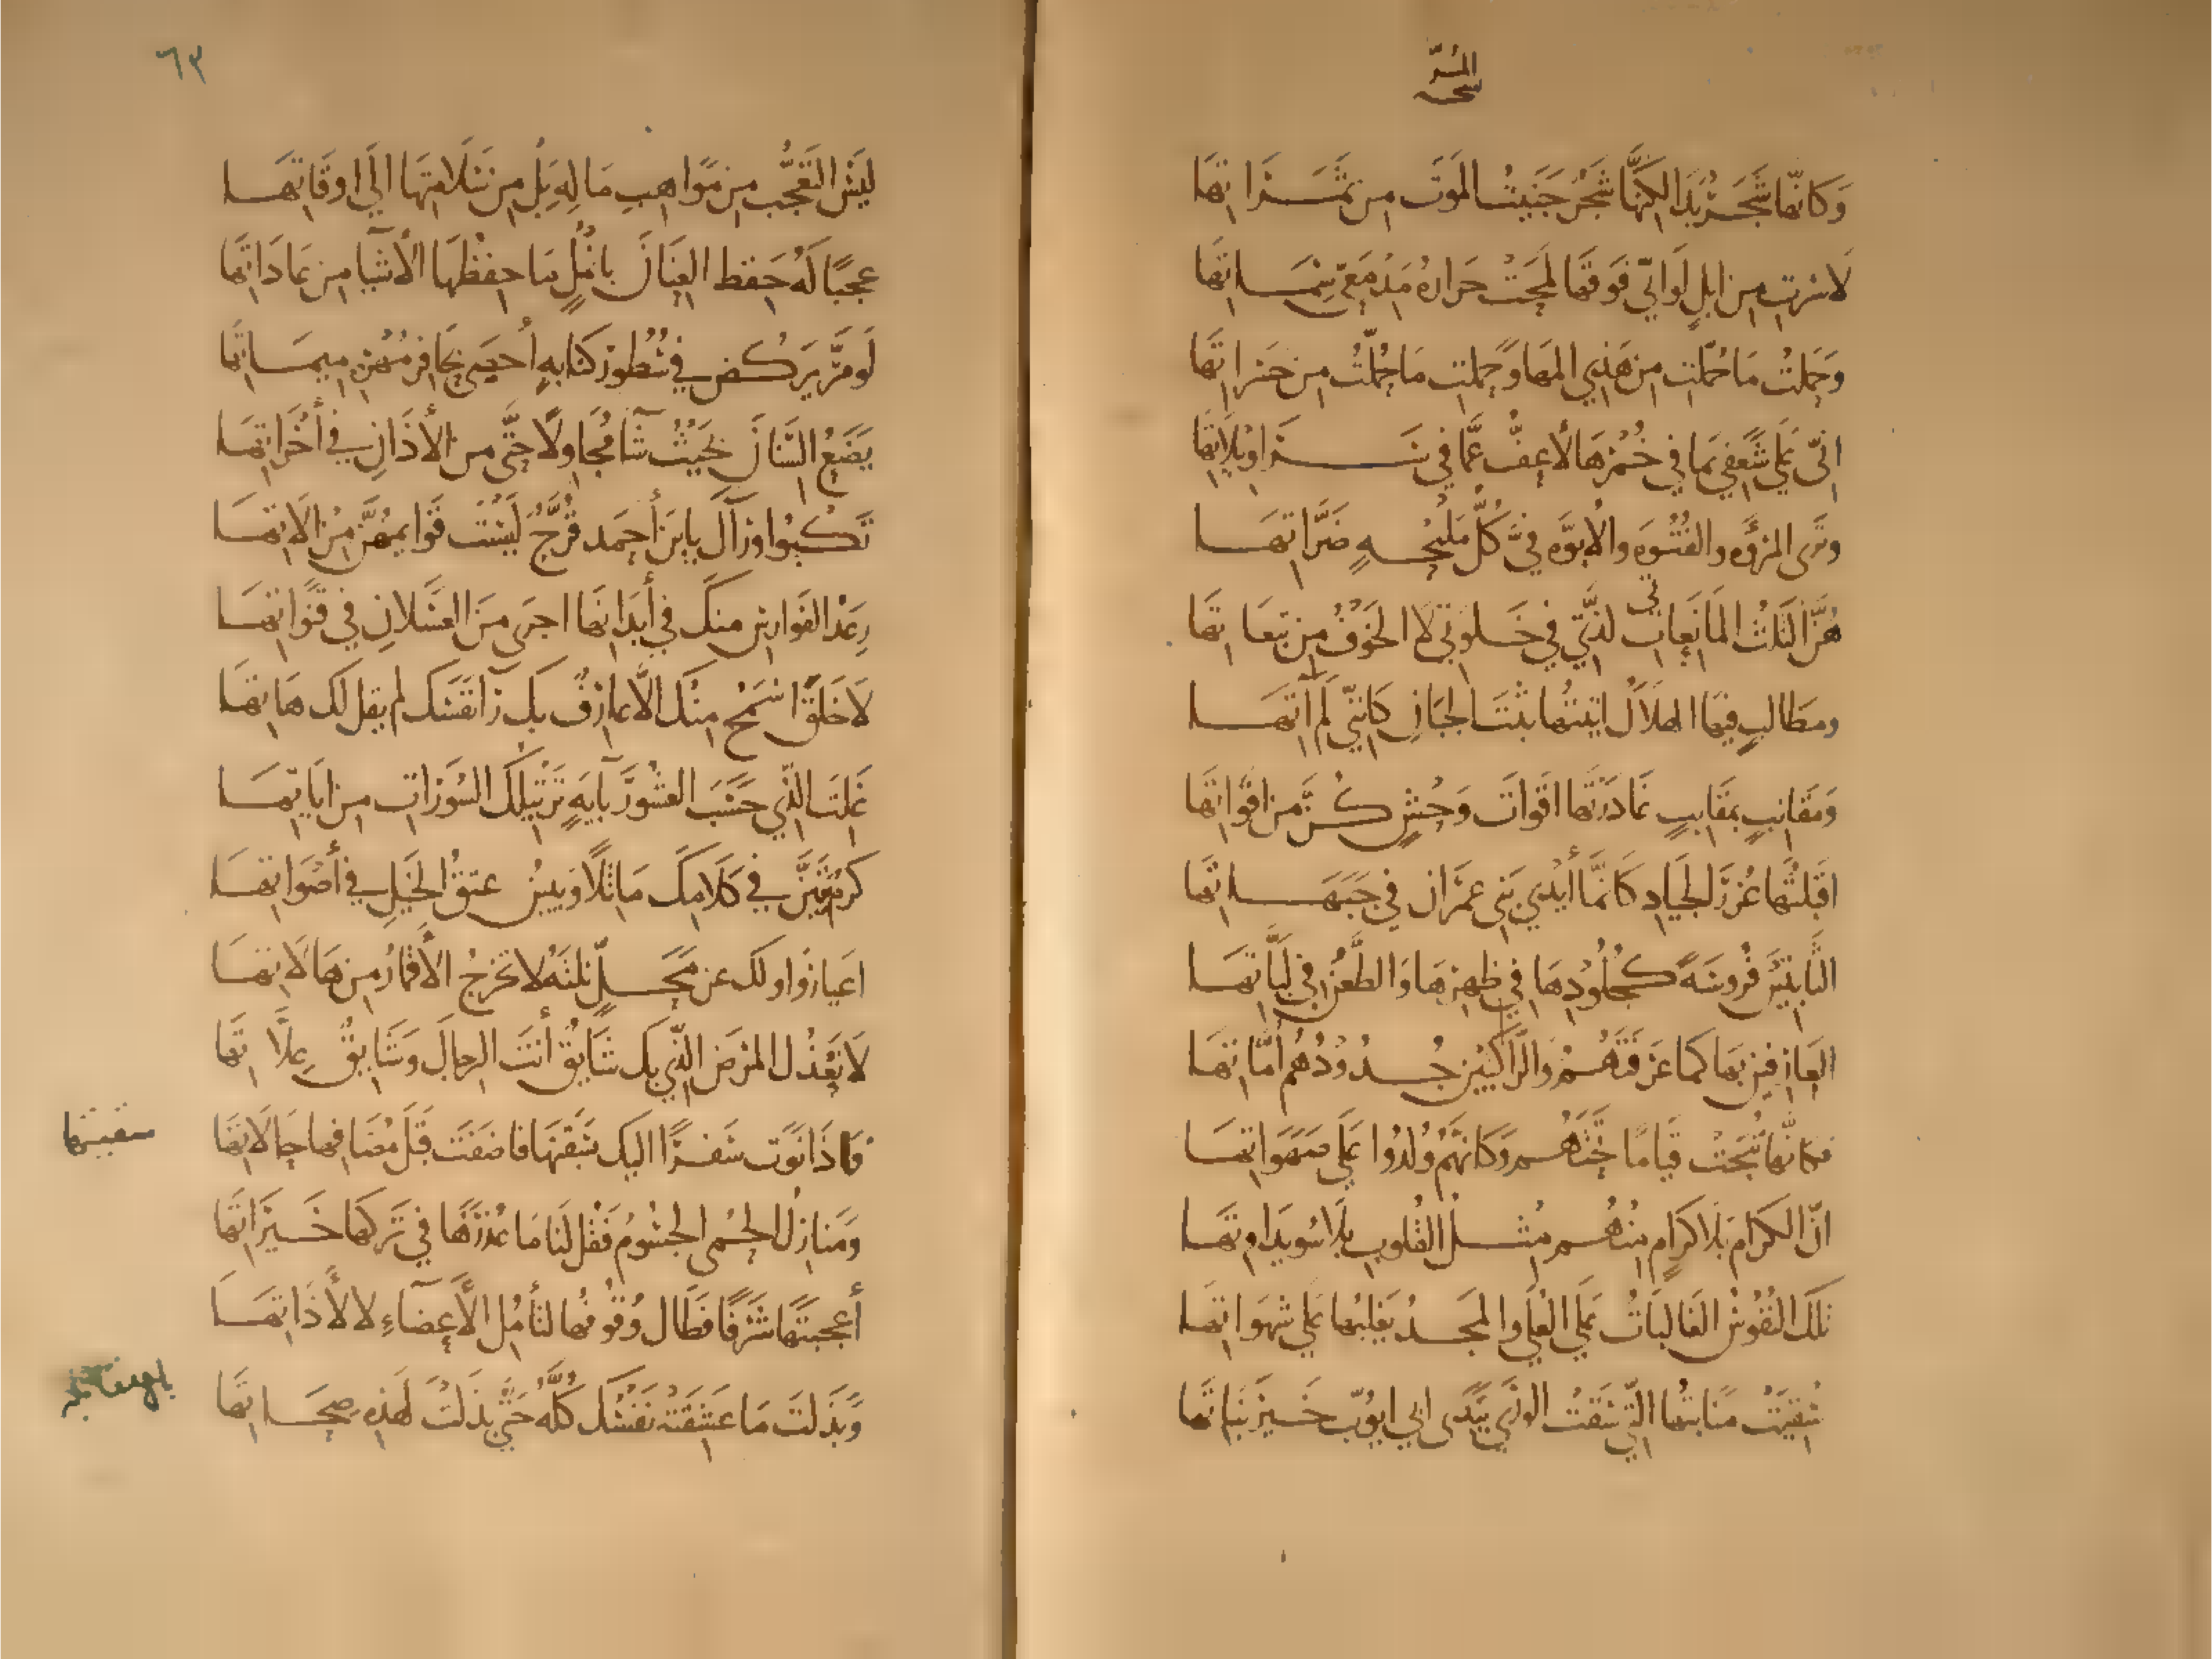 وَكَأنّها شَجَرٌ بَدَا لكِنَّهَا شَجَرٌ جَنَيتُ المَوتَ مِن ثَمَرَاتِهَا
لَا سِرْتِ مِن إبلٍ لَوَ انّي فَوقَهَا لَمَحَتْ حَرَارَةُ مَدْمَعَيَّ سِمَاتِهَا
وَحَمَلْتُ مَا حُمّلتِ مِن هَذِي المَهَا وَحَمَلتِ مَا حُمّلْتُ مِن حَسَرَاتِهَا
إنّي عَلَى شَغَفِي بِمَا فِي خُمْرِهَا لَأعِفُّ عَمَّا فِي سَرَاوِيلَاتِهَا
وتَرَى المُرُوَّهَ والفُتُوَّهَ والأبُوَّهَ فِيَّ كُلُّ مَلِيحَهٍ ضَرَّاتِهَا
هُنَّ الثَّلَثُ المَانِعَاتِي لذَّتِي فِي خَلوَتِي لَا الخَوْفُ مِن تَبِعَاتِهَا
ومَطَالِبٍ فِيهَا الهلَاكُ أتَيتُهَا ثَبْتَ الجَنَانِ كَأنّنِي لَم آتِهَا
وَمَقَانِبٍ بِمَقَانِبٍ غَادَرْتُهَا أقْوَاتَ وَحْشٍ كُنَّ مِن أقْوَاتِهَا
أقْبَلتُهَا غُرَرَ الجِيَادِ كَأنَّمَا أيْدِي بَنِي عِمْرَانَ فِي جَبَهَاتِهَا
الثَّابِتِينَ فُرُوسَهً كَجُلُودِهَا فِي ظَهرِهَا وَالطَّعْنُ فِي لَبَّاتِهَا
العَارِفِينَ بِهَا كَمَا عَرَفَتْهُمُ وَالرَّاكِبِينَ جُدُودُهُم أُمَّاتِهَا
فكَأنَّهَا نُتِجَتْ قِيَامًا تَحْتَهُم وَكَأنَّهُم وُلِدُوا عَلَى صَهَوَاتِهَا
إنّ الكِرَامَ بِلَا كِرَامٍ مِنْهُم مِثْلُ القُلُوبِ بِلَا سُوَيدَاوَاتِهَا
تلكَ النُّفُوسُ الغَالِبَاتُ عَلَى العُلَى والمَجدُ يَغلِبُهَا عَلَى شَهَوَاتِهَا
سُقِيَتْ مَنَابِتُهَا الَّتِي سَقَتْ الوَرَى بِيَدَى أبِي أيُّوبَ خَيْرِ نَبَاتِهَا
٦٣
لَيْسَ التَّعَجُّبُ مِن مَوَاهِبِ مَالِهِ بَلْ مِن سَلَامَتِهَا إلَى أوْقَاتِهَا
عَجَبًا لَهُ حِفظُ العِنَانَ بأنْمُلٍ مَا حِفْظُهَا الأشْيَا مِن عَادَاتِهَا
لَو مَرَّ يَركُضُ فِي سُطُورِ كِتَابهٍ أحصَى بِحَافِرِ مُهْرِهِ مِيمَاتِهَا
يَضَعُ السِّنَانَ بِحَيْثُ شَآءَ مُجَاوِلًا حَتَّى مِن الآذَانِ فِي أخْرَاتِهَا
تَكْبُو اوَرَآكَ يَابنَ أحْمَد قُرَّحٌ لَيْسَتْ قَوَايمُهُنَّ مِن آلَاتِهَا
رِعَدُ الفَوَارِسِ مِنكَ فِي أبْدَانِهَا اجرَى مِنَ العَسَلَانِ فِي قَنَوَاتِهَا
لَا خَلقَ اسْمَحُ مِنْكَ إلَّا عَارِفٌ بِكَ رَآ نَفْسَكَ لَم يَقُل لَكَ هَاتِهَا
غَلِتَ الَّذِي حَسَبَ العُشُورَ بآيَهٍ تَرْتِيلُكَ السُّورَاتِ مِن آيَاتِهَا
كَرَمٌ تَبَيَّنَ فِي كَلَامِكَ مَاثِلًا وَيَبِينُ عِتقُ الخَيلِ فِي أصْوَاتِهَا
أعيَا زَوَالُكَ عَن مَحَلٍّ نِلتَهُ لَا تَخرُجُ الأقْمَارُ مِن هَالَاتِهَا
لَا نَعْذُلُ المَرَضَ الَّذِي بِكَ شَايِقٌ أنْتَ الرِّجَالَ وَشَايِقٌ عِلَّاتِهَا
فَإذَا نَوَت سَفَرًا إلَيكَ سَبَقْنَهَا فَأضَفْتَ قَبلَ مُضَافِهَا حَالَاتِهَا
سبقتها
وَمَنَازِلُ الحُمّى الجُسُومُ فَقُل لَنَا مَا عُذْرُهَا فِي تَرْكِهَا خَيْرَاتِهَا
أعجَبْتَهَا شَرَفًا فَطَالَ وُقُوفُهَا لِتَأمُّلِ الأعضَآءِ لَا لِأذَاتِهَا
وَبَذَلتَ مَا عَشِقَتْهُ نَفْسُكَ كُلَّهُ حَتَّى بَذَلتَ لِهَذِهِ صِحَّاتِهَا